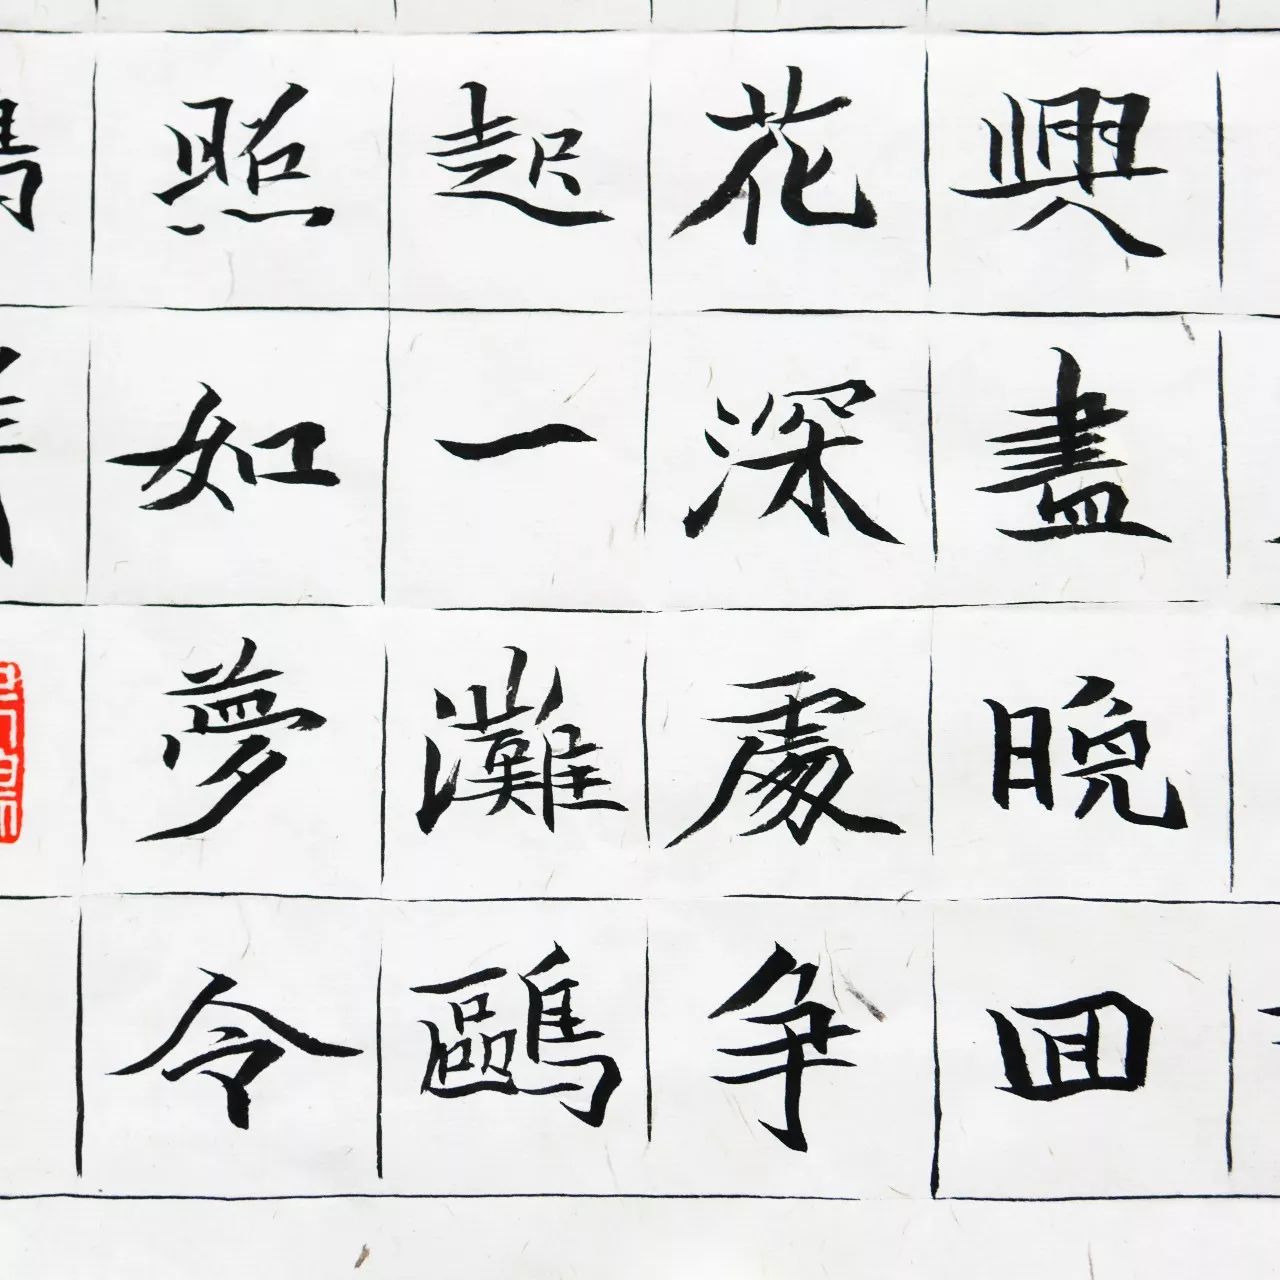 興盡晚回
花深處争
起一灘鷗
照如夢令